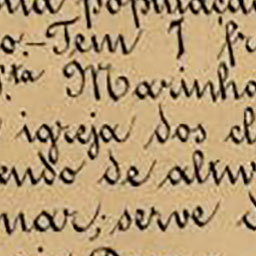 população
o.- Tem 1 fr
ta Marinha
igreja dos cl
endo de altu
mar; serve